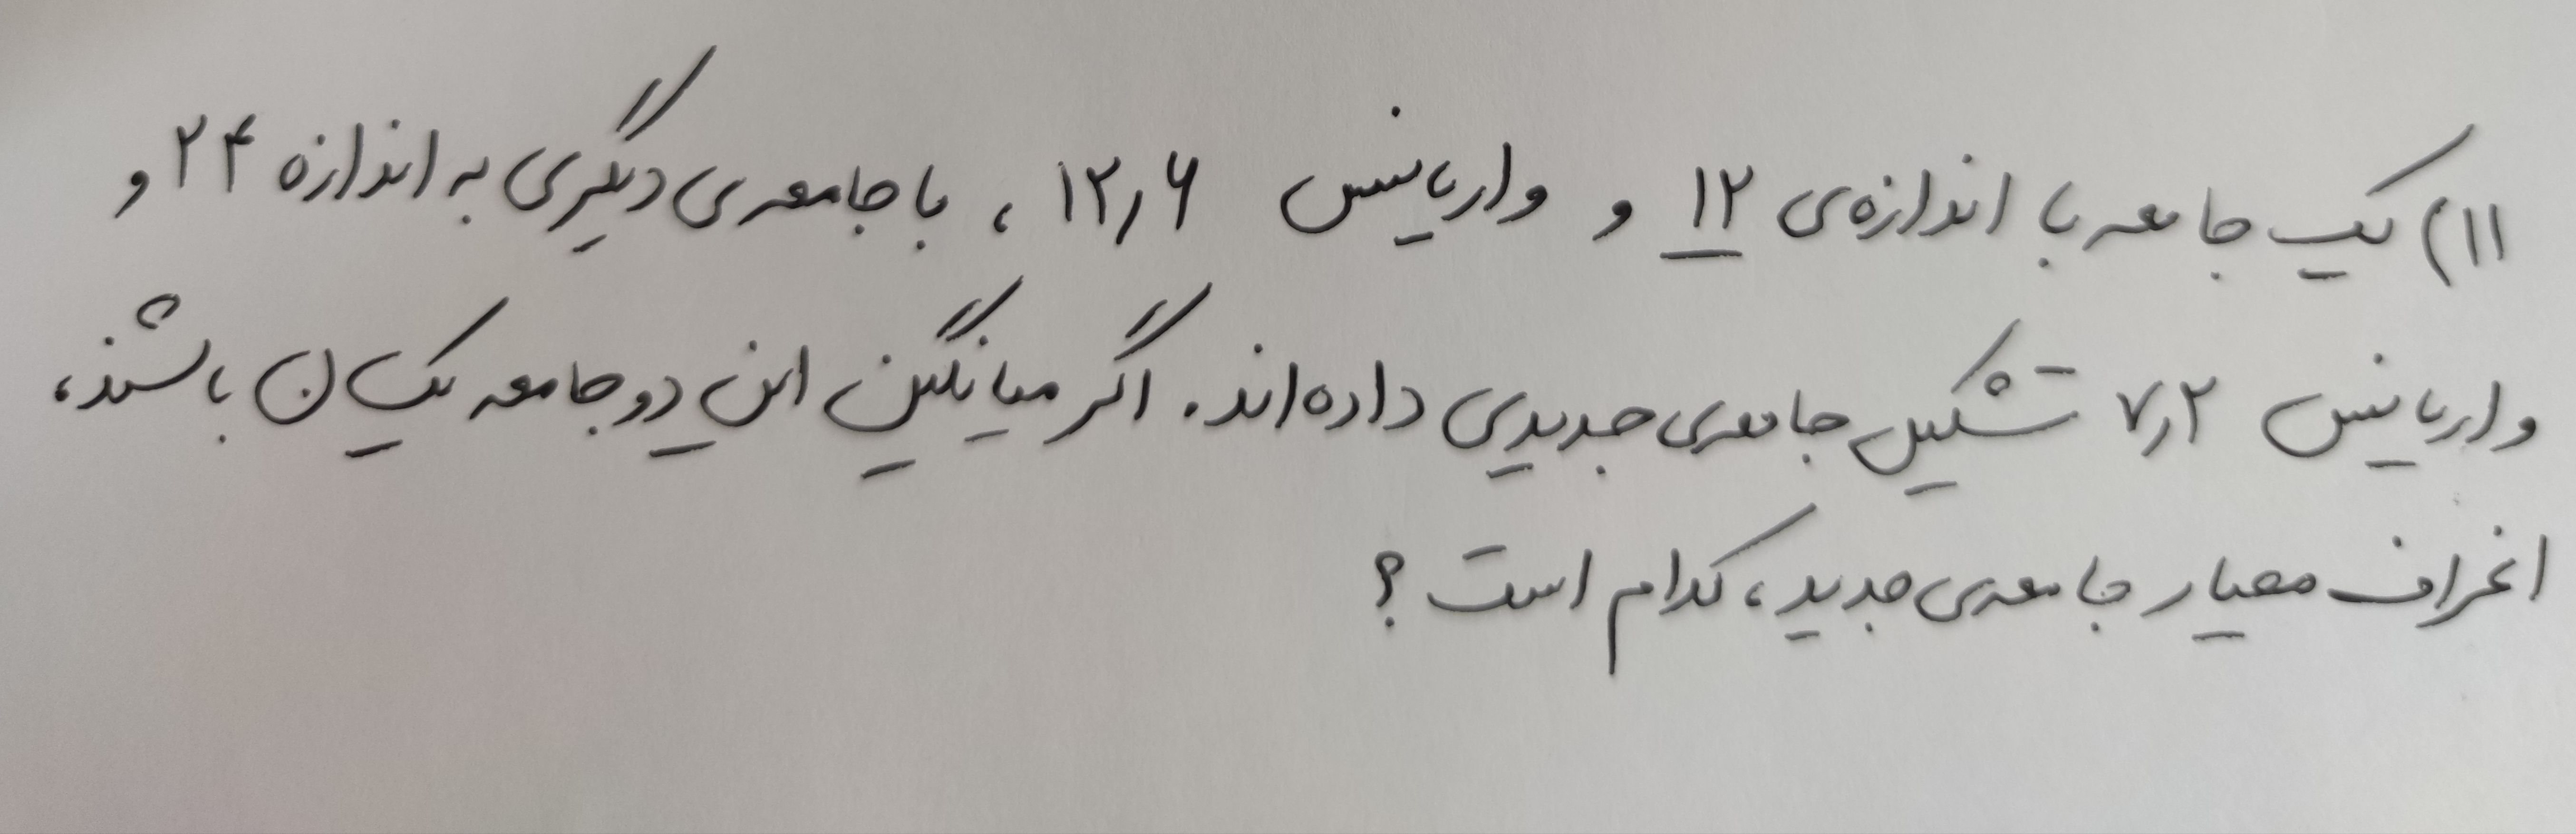 ۱۱) یک جامعه با اندازه‌ی ۱۲ و واریانس ۱۲٫۶ ، با جامعه‌ی دیگری به اندازه ۲۴ و
واریانس ۷٫۲ تشکیل جامعه‌ی جدیدی داده‌اند. اگر میانگین این دو جامعه یکسان باشند،
انحراف معیار جامعه‌ی جدید، کدام است؟